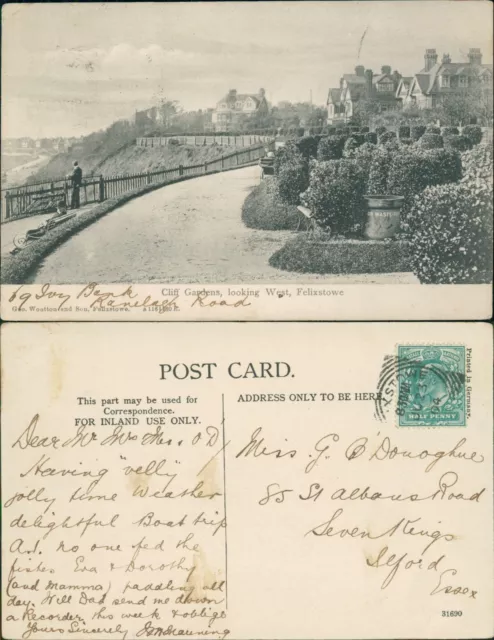 Cliff Gardens, looking West, Felixstowe
69 Ivy Bank Ranelagh Road
Geo. Wootton and Son, Felixstowe.
POST CARD.
This part may be used for
Correspondence.
FOR INLAND USE ONLY.
ADDRESS ONLY TO BE HERE.
Printed in Germany.
HALF PENNY
Dear Mr Mrs Miss O D
Having "velly"
jolly time Weather
delightful Boat trip
A.1. no one fed the
fishes Eva & Dorothy
(and Mamma) paddling all
day. Will Dad send me down
a Recorder this week & oblige
Yours Sincerely
Miss G. O'Donoghue
85 St Albans Road
Seven Kings
Ilford
Essex
31690